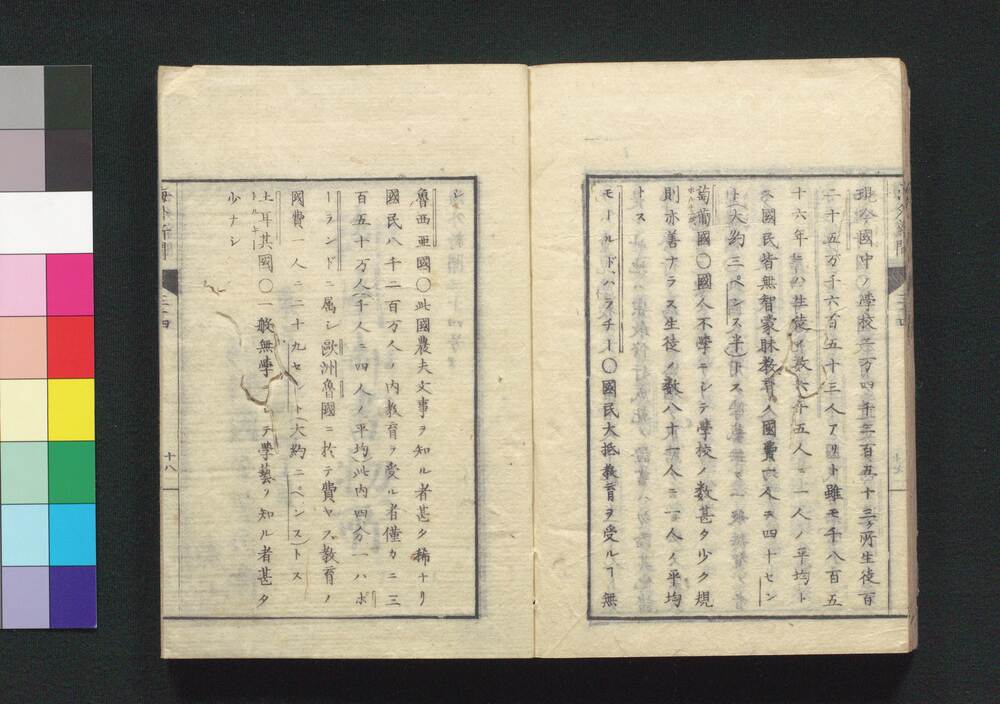 現今國中ノ學校二万四千二百五十三ヶ所生徒百
二十五万千六百五十三人アリト雖モ千八百五
十六年ニハ生徒ノ数六十五人ニ一人ノ平均ト
ス國民皆無智蒙昧教育ノ國費一人ヲ四十セン
ト大約三ペンス半トス
葡萄國〇國人不學ニシテ學校ノ数甚タ少ク規
則亦善ナラス生徒ノ数八十一人ニ一人ノ平均
トス
モールドハラチー〇國民大抵教育ヲ受ルヿ無
シ
魯西亜國〇此國農夫文事ヲ知ル者甚タ稀ナリ
國民八千二百万人ノ内教育ヲ受ル者僅カニ三
百五十万人(千人ニ四人ノ平均)此内四分一ハポ
ーランドニ属シ歐洲魯國ニ於テ費ヤス教育ノ
國費一人ニ二十九セント(大約ニペンス)トス
土耳其國〇一般無學ニシテ學藝ヲ知ル者甚タ
少ナシ
十八